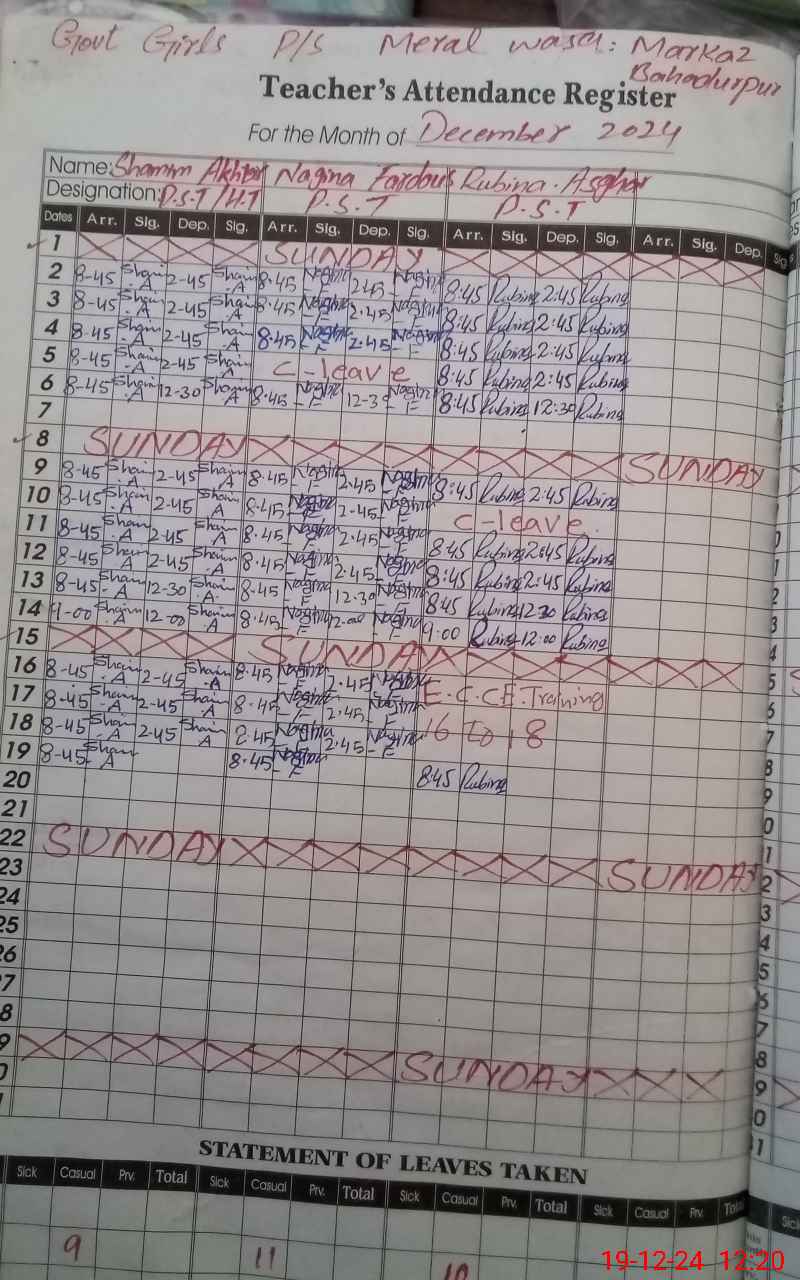 Govt Girls P/S Meral wasa: Markaz
Bahadurpur
Teacher's Attendance Register
For the Month of December 2024
Name: Shamim Akhtar Nagina Fardous Rubina Asghar
Designation: P.S.T/H.T P.S.T P.S.T
Dates Arr. Sig. Dep. Sig. Arr. Sig. Dep. Sig. Arr. Sig. Dep. Sig. Arr. Sig. Dep. Sig
1 SUNDAY
2 8-45 Sham.A 2-45 Sham.A 8.45 Nagina F 2.45 Nagina F 8:45 Rubina 2:45 Rubina
3 8-45 Sham.A 2-45 Sham.A 8.45 Nagina F 2.45 Nagina F 8:45 Rubina 2:45 Rubina
4 8-45 Sham.A 2-45 Sham.A 8.45 Nagina F 2.45 Nagina F 8:45 Rubina 2:45 Rubina
5 8-45 Sham.A 2-45 Sham.A C-leave 8:45 Rubina 2:45 Rubina
6 8-45 Sham.A 12-30 Sham.A 8.45 Nagina F 12-3 Nagina F 8:45 Rubina 12:30 Rubina
7
8 SUNDAY SUNDAY
9 8-45 Sham.A 2-45 Sham.A 8.45 Nagina F 2.45 Nagina F 8:45 Rubina 2:45 Rubina
10 8-45 Sham.A 2-45 Sham.A 8.45 Nagina F 2.45 Nagina F C-leave.
11 8-45 Sham.A 2-45 Sham.A 8.45 Nagina F 2.45 Nagina F 8:45 Rubina 2:45 Rubina
12 8-45 Sham.A 2-45 Sham.A 8.45 Nagina F 2.45 Nagina F 8:45 Rubina 2:45 Rubina
13 8-45 Sham.A 12-30 Sham.A 8.45 Nagina F 12.30 Nagina F 8:45 Rubina 12:30 Rubina
14 9-00 Sham.A 12-00 Sham.A 8.45 Nagina F 12.00 Nagina F 9:00 Rubina 12:00 Rubina
15 SUNDAY
16 8-45 Sham.A 2-45 Sham.A 8.45 Nagina F 2.45 Nagina F E.C.C.E.Training
17 8-45 Sham.A 2-45 Sham.A 8.45 Nagina F 2.45 Nagina F 16 to 18
18 8-45 Sham.A 2-45 Sham.A 2.45 Nagina F 2.45 Nagina F
19 8-45 Sham.A 8.45 Nagina F 8:45 Rubina
20
21
22 SUNDAY SUNDAY
23
24
25
26
27
8
9 SUNDAY
0
STATEMENT OF LEAVES TAKEN
Sick Casual Prv. Total Sick Casual Prv. Total Sick Casual Prv. Total Sick Casual Prv. Total
9 11 10
19-12-24 12:20